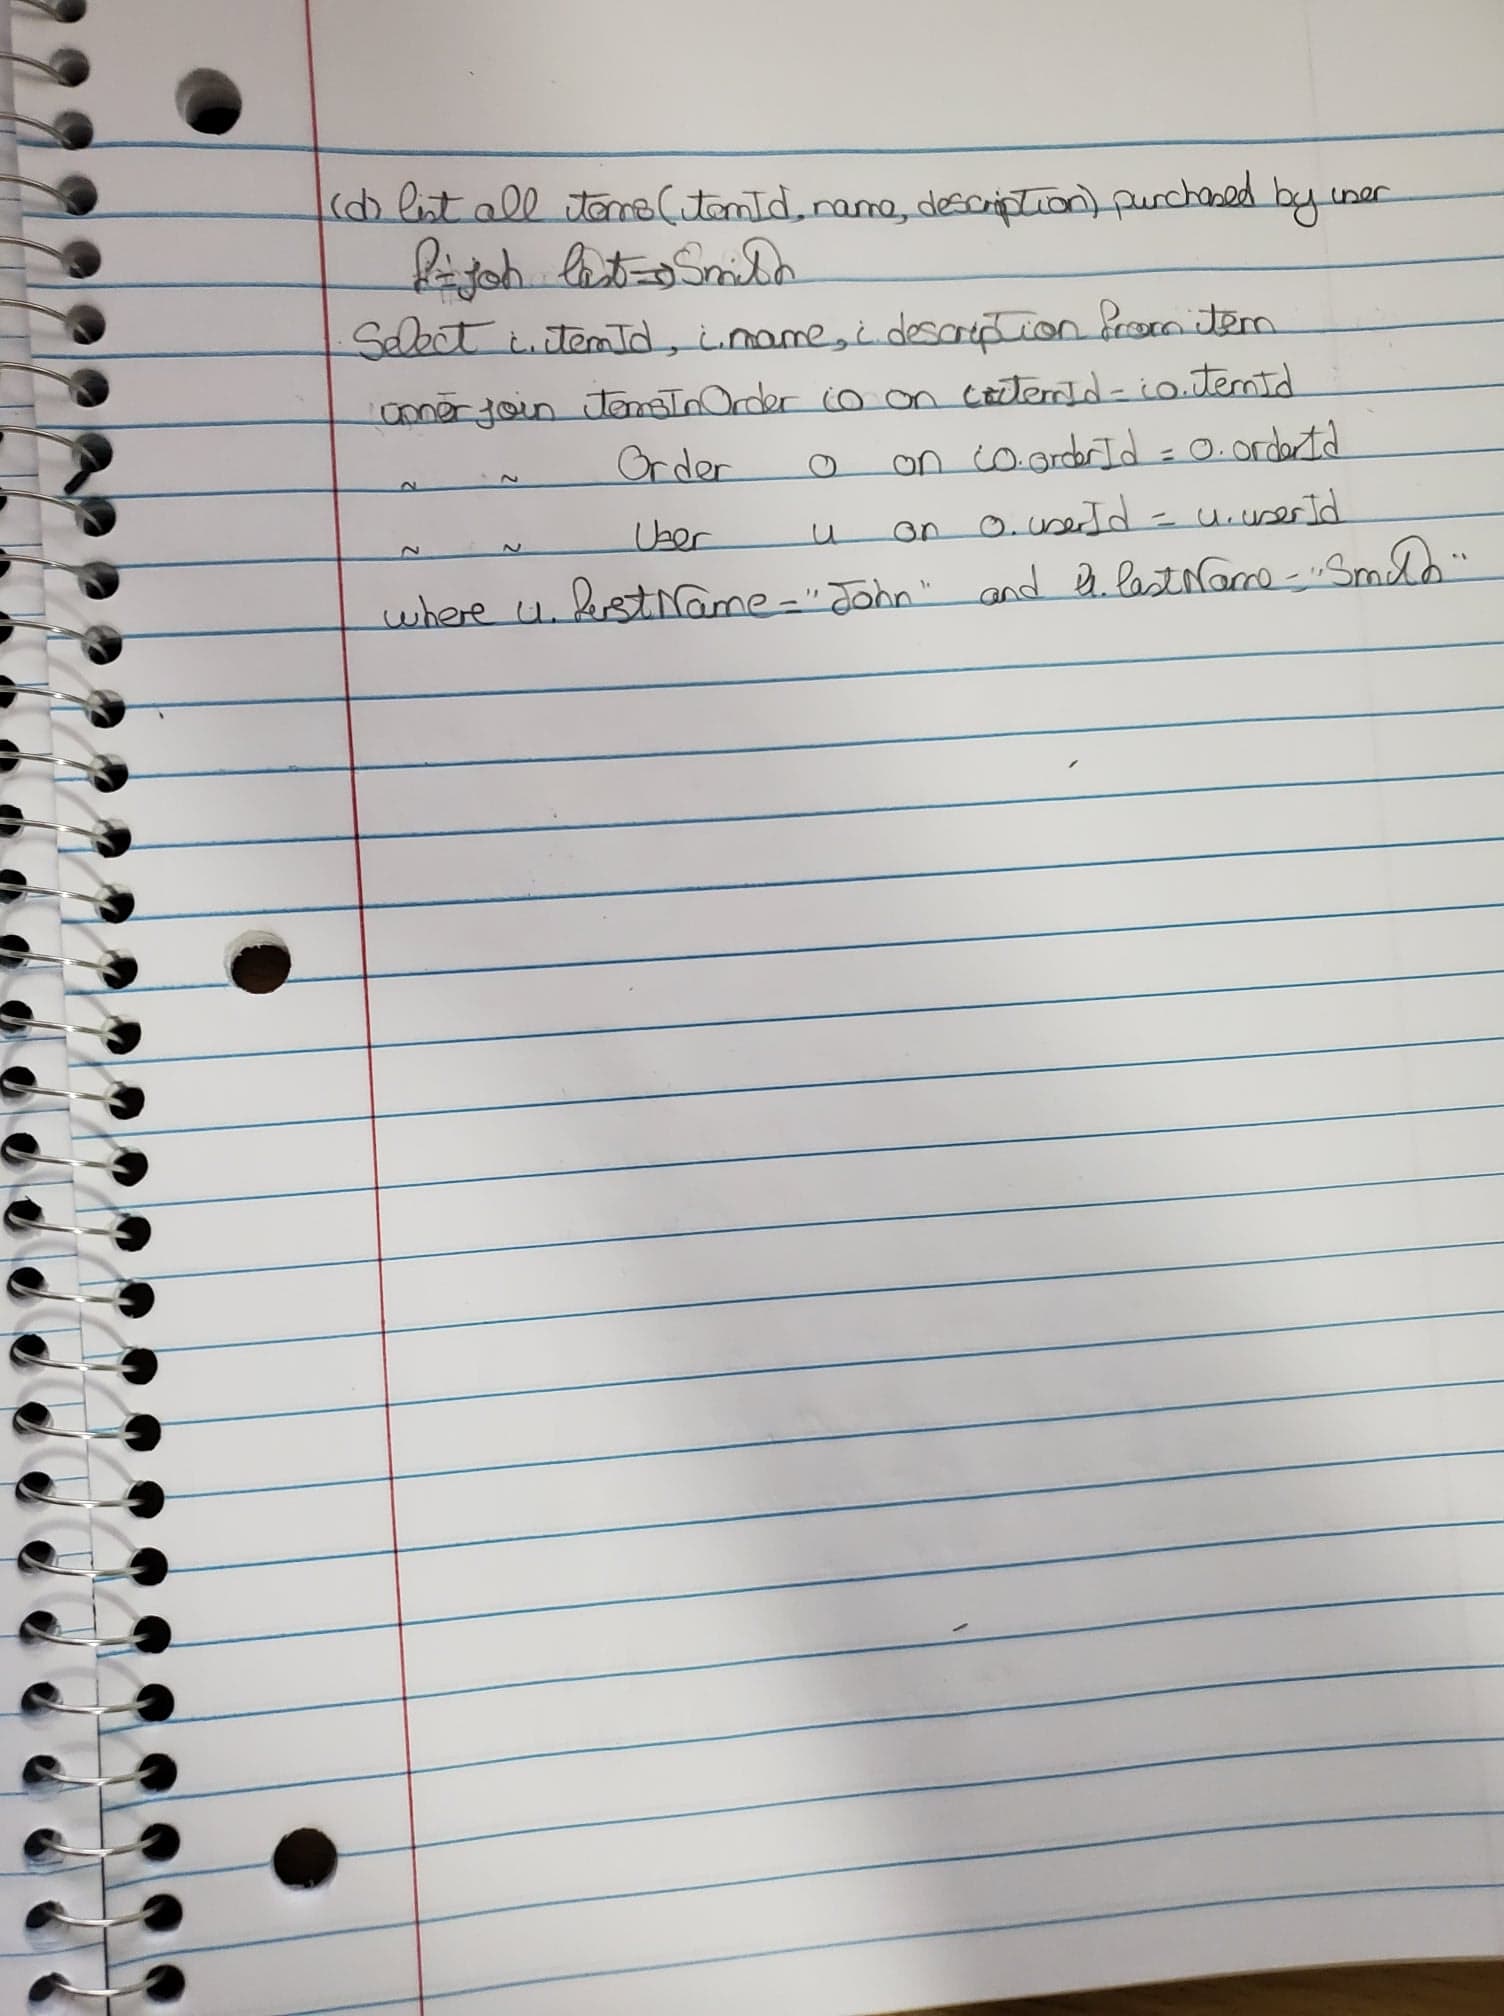 (d) list all items (itemId, name, description) purchased by user
f = joh last => Smith
Select i.itemId, i.name, i.description from item
inner join itemsInOrder io on i.itemId = io.itemId
~ ~ Order o on io.orderId = o.orderId
~ ~ User u on o.userId = u.userId
where u.firstName = "John" and u.lastName = "Smith"